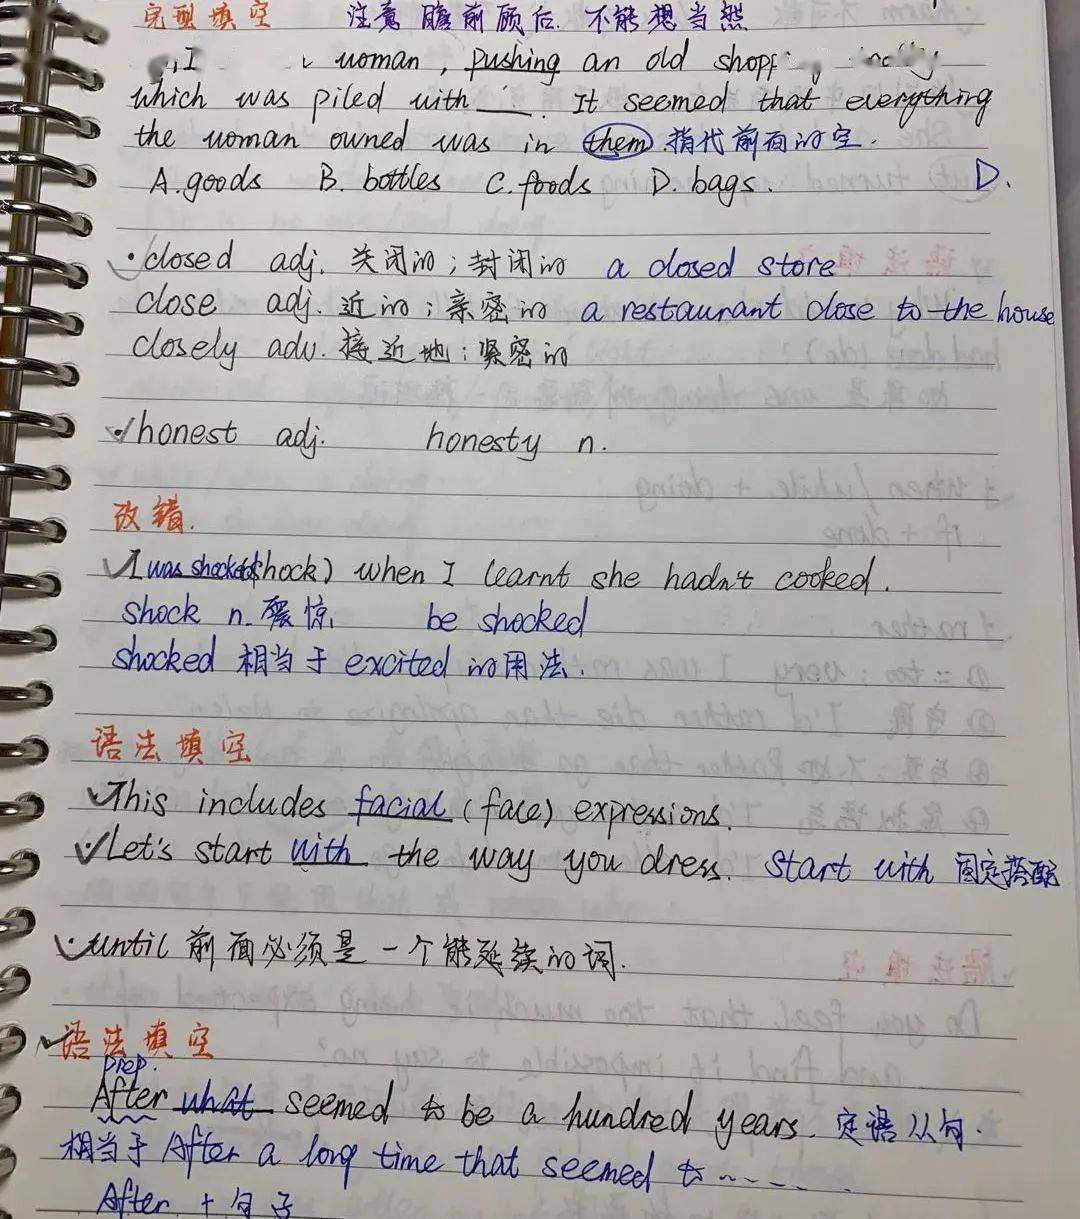 完型填空 注意瞻前顾后 不能想当然
I woman, pushing an old
which was piled with ____. It seemed that everything
the woman owned was in them. 指代前面的空.
A. goods B. bottles C. foods D. bags. D.
· closed adj. 关闭的；封闭的 a closed store
close adj. 近的；亲密的 a restaurant close to the house
closely adv. 接近地；紧密的
· honest adj. honesty n.
改错.
I was shocked (shock) when I learnt she hadn't cooked.
shock n. 震惊 be shocked
shocked 相当于 excited 的用法.
语法填空
· This includes facial (face) expressions.
· Let's start with the way you dress. start with 固定搭配
· until 前面必须是一个能延续的词.
语法填空
prep.
After what seemed to be a hundred years. 定语从句.
相当于 After a long time that seemed to ......
After + 句子